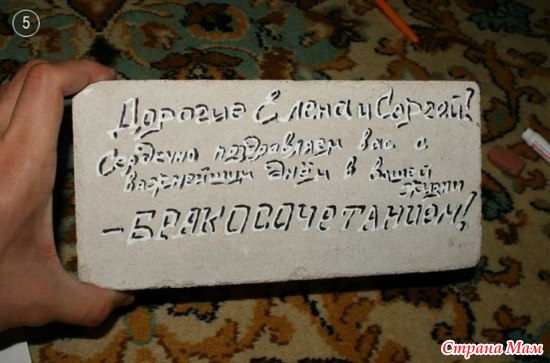 5
Дорогие Елена и Сергей!
Сердечно поздравляем вас с
важнейшим днём в вашей
жизни
– БРАКОСОЧЕТАНИЕМ!
Страна Мам